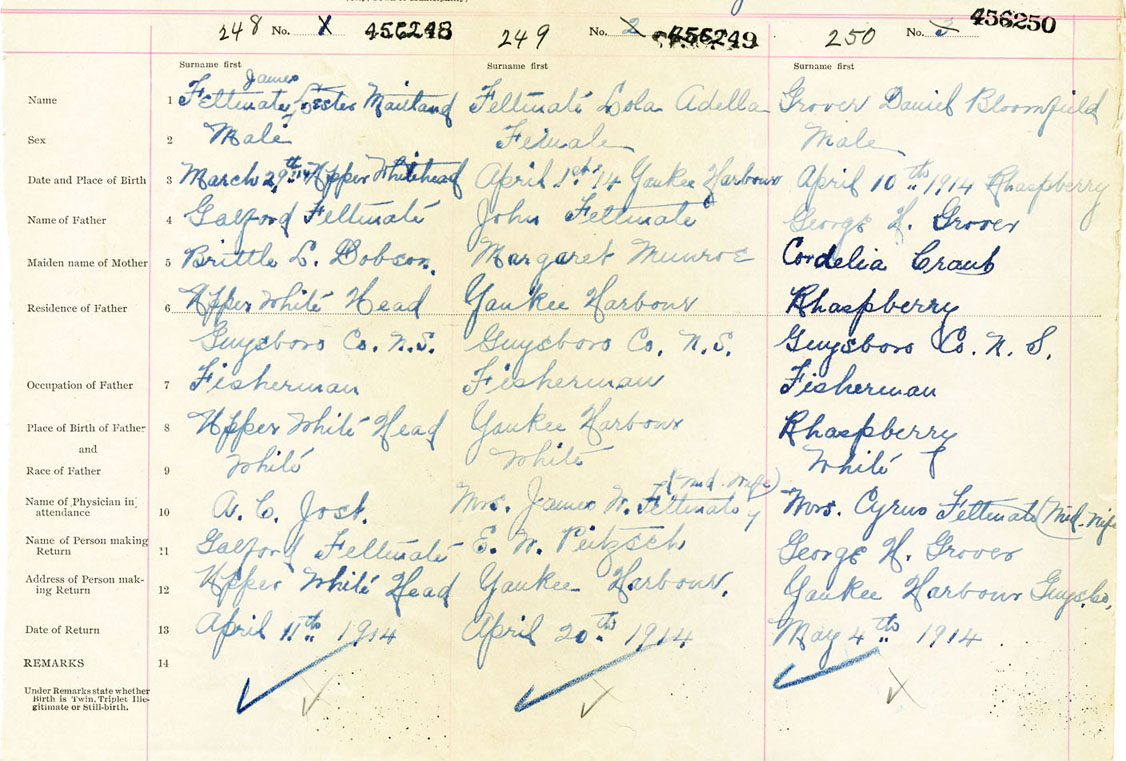 248 No. 1 456248 249 No. 2 456249 250 No. 3 456250
Surname first Surname first Surname first
James
Name 1 Feltmate, Lester Maitland Feltmate Lola Adella Grover Daniel Bloomfield
Sex 2 Male Female Male
Date and Place of Birth 3 March 29th 14 Upper Whitehead April 1st 14 Yankee Harbour April 10th 1914 Rhaspberry
Name of Father 4 Galford Feltmate John Feltmate George H. Grover
Maiden name of Mother 5 Brittle L. Dobson. Margaret Munroe Cordelia
Residence of Father 6 Upper White Head Yankee Harbour Rhaspberry
Guysboro Co. N.S. Guysboro Co. N.S. Guysboro Co. N. S.
Occupation of Father 7 Fisherman Fisherman Fisherman
Place of Birth of Father 8 Upper White Head Yankee Harbour Rhaspberry
and
Race of Father 9 White White White
(Mid. Wife)
Name of Physician in attendance 10 A. C. Jost. Mrs. James W. Feltmate Mrs. Cyrus Feltmate (Mid. Wife
Name of Person making Return 11 Galford Feltmate E. W. Peitzsch George H. Grover
Address of Person making Return 12 Upper White Head Yankee Harbour. Yankee Harbour Guysbo,
Date of Return 13 April 11th 1914 April 20th 1914 May 4th 1914
REMARKS 14
Under Remarks state whether
Birth is Twin, Triplet Ille-
gitimate or Still-birth.